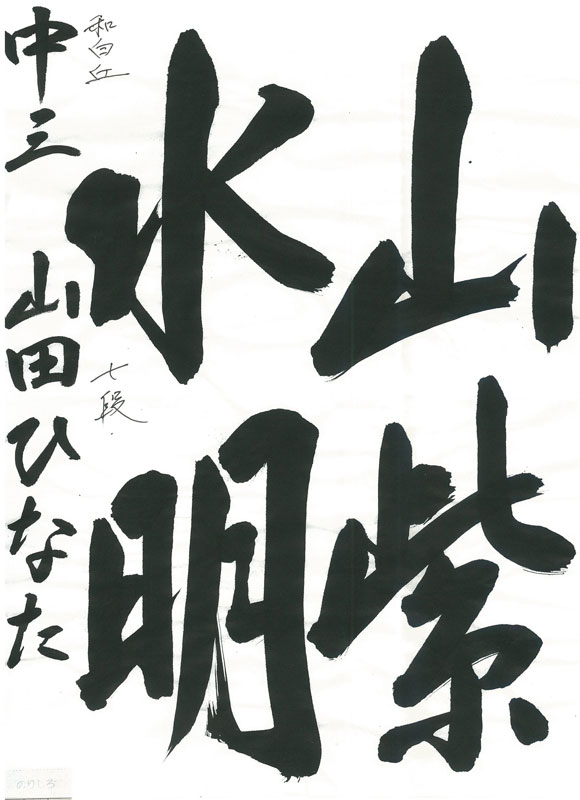 山紫
水明
和白丘
七段
中三 山田ひなた
のりしろ